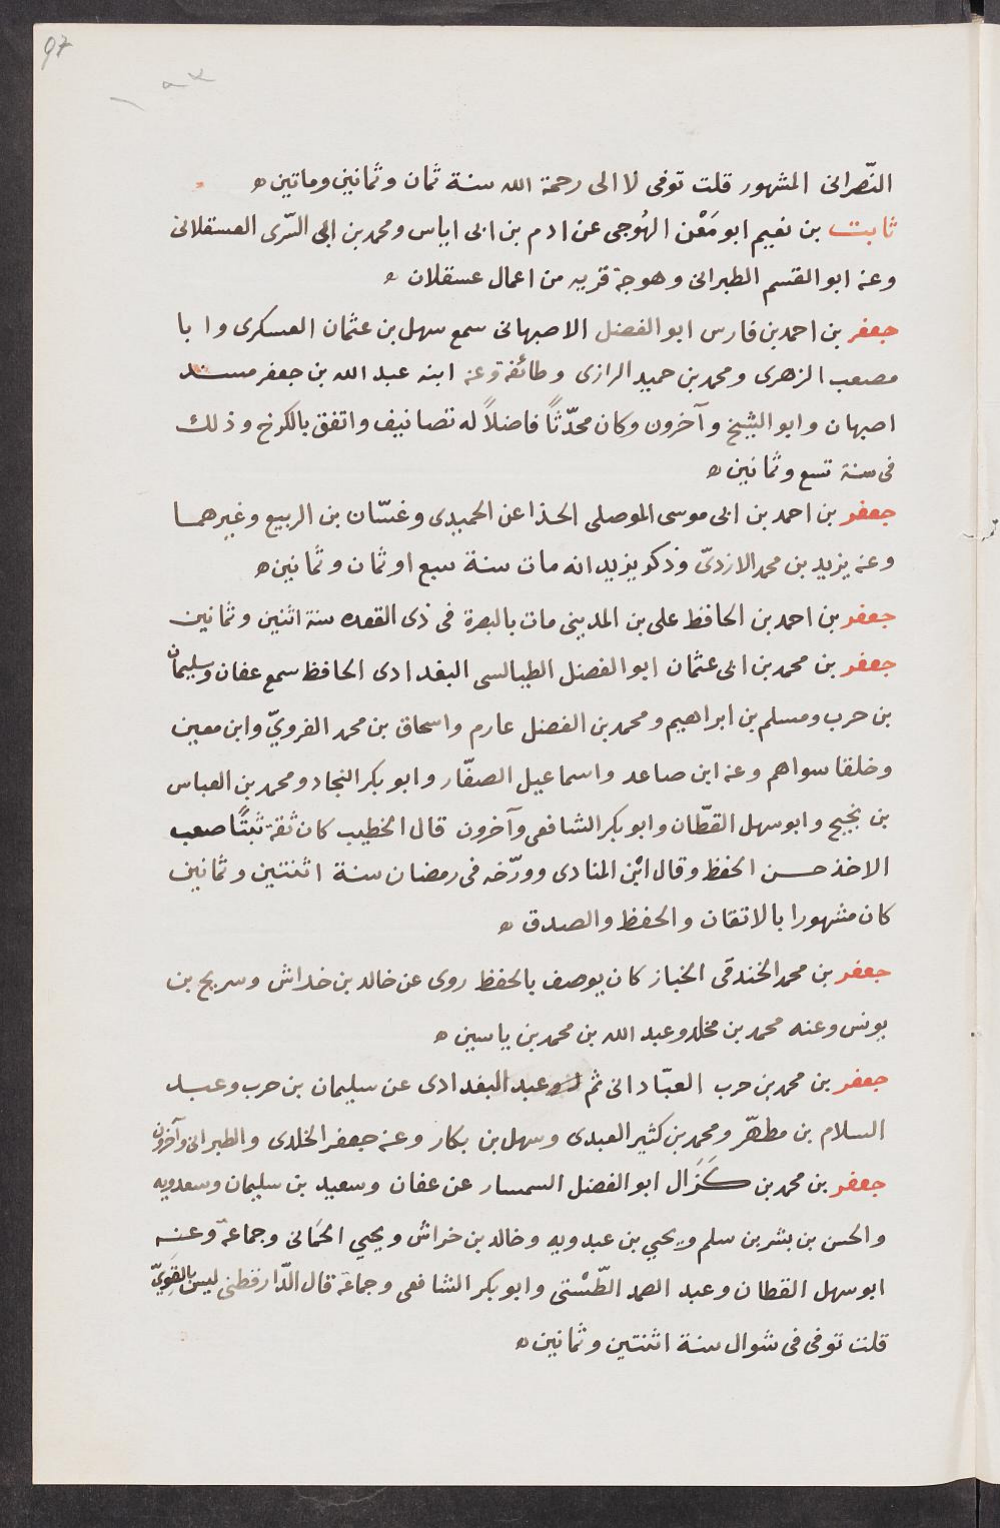 97
النّصرانى المشهور قلت توفى لا الى رحمة الله سنة ثمان وثمانين وماتين ه
ثابت بن نعيم ابو مَعْن الهُوجى عن ادم بن ابى اياس ومحمد بن ابى السّرى العسقلانى
وعنه ابو القسم الطبرانى وهوجة قريه من اعمال عسقلان ه
جعفر بن احمد بن فارس ابو الفضل الاصبهانى سمع سهل بن عثمان العسكرى وابا
مصعب الزهرى ومحمد بن حميد الرازى وطائفة وعنه ابنه عبد الله بن جعفر مسند
اصبهان وابو الشيخ وآخرون وكان محدّثاً فاضلاً له تصانيف واتفق بالكرخ وذلك
فى سنة تسع وثمانين ه
جعفر بن احمد بن ابى موسى الموصلى الحذا عن الحميدى وغسّان بن الربيع وغيرهما
وعنه يزيد بن محمد الازدىّ وذكر يزيد انه مات سنة سبع او ثمان وثمانين ه
جعفر بن احمد بن الحافظ على بن المدينى مات بالبصرة فى ذى القعده سنة اثنين وثمانين
جعفر بن محمد بن ابى عثمان ابو الفضل الطيالسى البغدادى الحافظ سمع عفان وسليمان
بن حرب ومسلم بن ابراهيم ومحمد بن الفضل عارم واسحاق بن محمد الفرويّ وابن معين
وخلقا سواهم وعنه ابن صاعد واسماعيل الصفّار وابو بكر النجاد ومحمد بن العباس
بن نجيح وابو سهل القطّان وابو بكر الشافعى وآخرون قال الخطيب كان ثقة ثبتًا صعب
الاخذ حسن الحفظ وقال ابْن المنادى وورّخه فى رمضان سنة اثنتين وثمانين
كان مشهورا بالاتقان والحفظ والصدق ه
جعفر بن محمد الخندقى الخباز كان يوصف بالحفظ روى عن خالد بن خداش وسريح بن
يونس وعنه محمد بن مخلد وعبد الله بن محمد بن ياسين ه
جعفر بن محمد بن حرب العبّادانى ثم البغدادى عن سليمان بن حرب وعبد
السلام بن مطهّر ومحمد بن كثير العبدى وسهل بن بكار وعنه جعفر الخلدى والطبرانى وآخرون
جعفر بن محمد بن كَزَال ابو الفضل السمسار عن عفان وسعيد بن سليمان وسعدويه
والحسن بن بشر بن سلم ويحيي بن عبدويه وخالد بن خراش ويحيي الحَمانى وجماعة وعنه
ابو سهل القطان وعبد الصمد الطّسْتى وابو بكر الشافعى وجماعة قال الدّارقطنى ليس بالقَوِىّ
قلت توفى فى شوال سنة اثنتين وثمانين ه